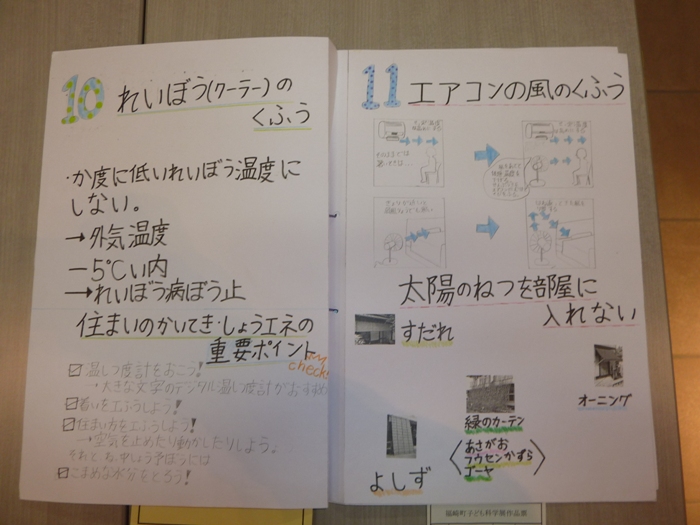 10 れいぼう(クーラー)の
くふう
・か度に低いれいぼう温度に
しない。
→外気温度
－5℃い内
→れいぼう病ぼう止
住まいのかいてき・しょうエネの
重要ポイント
check!
☑温しつ度計をおこう!
→大きな文字のデジタル温しつ度計がおすすめ
☑着いをエふうしよう!
☑住まい方をエふうしよう!
→空気を止めたり動かしたりしよう。
それと、ね、中しょう予ぼうには
☑こまめな水分をとろう!
11 エアコンの風のくふう
太陽のねつを部屋に
入れない
すだれ
オーニング
緑のカーテン
あさがお
フウセンかずら
ゴーヤ
よしず
福崎町子ども科学展作品展